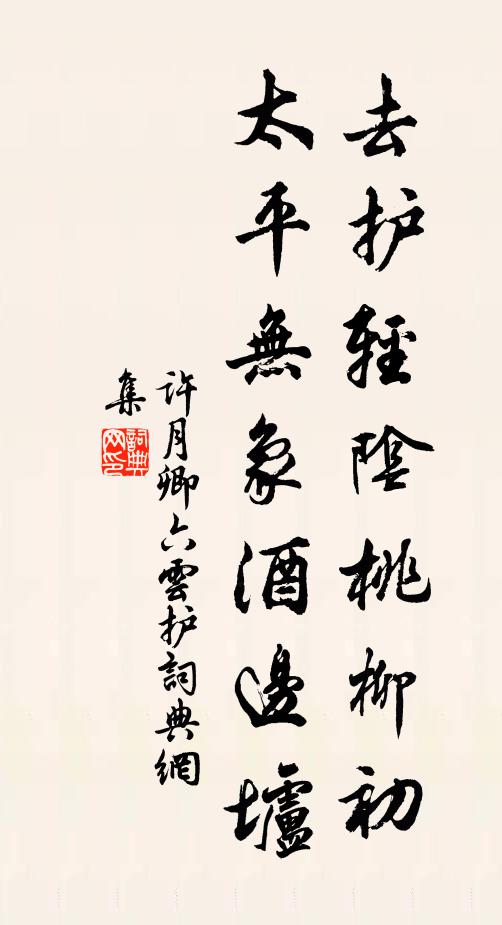 去护輕陰桃柳初
太平無象酒邊壚
許月卿六雲护詞典網
集
詞典
网印